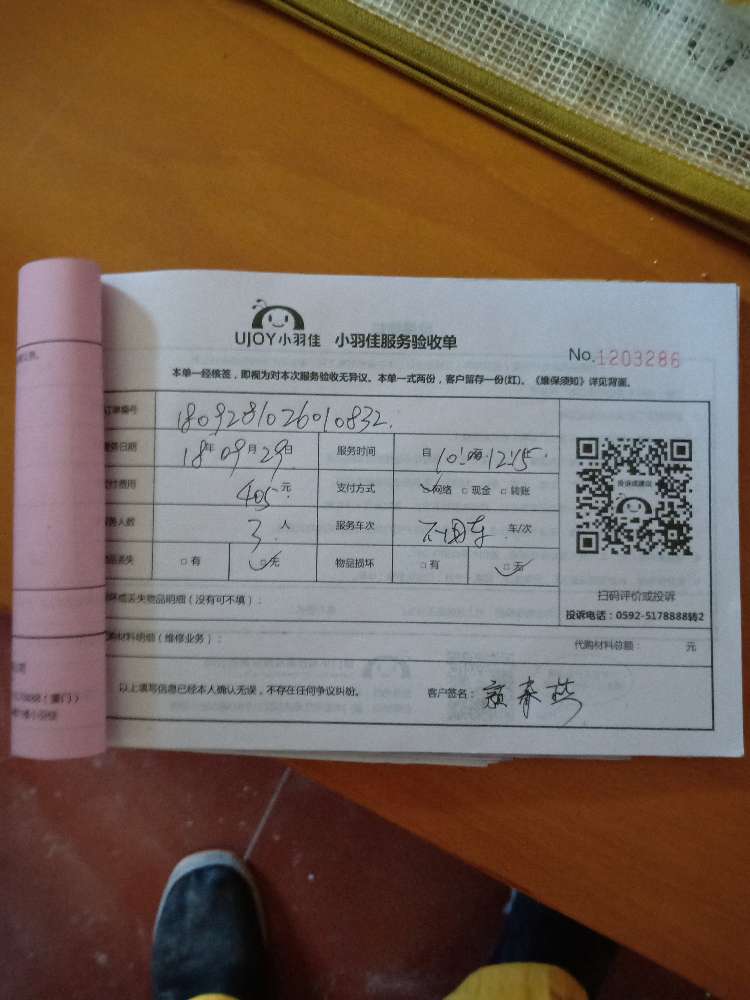 UJOY小羽佳 小羽佳服务验收单
No.1203286
本单一经核签，即视为对本次服务验收无异议。本单一式两份，客户留存一份(红)。《维保须知》详见背面。
订单编号 1809281026010832
服务日期 18年09月29日 服务时间 自10:00-12:15
付费用 405元 支付方式 ☑网络 □现金 □转账
人数 3人 服务车次 不用车 车/次
物品丢失 □有 ☑无 物品损坏 □有 ☑无
投诉或建议
扫码评价或投诉
坏或丢失物品明细（没有可不填）：
投诉电话：0592-5178888转2
购材料明细（维修业务）：
代购材料总额： 元
以上填写信息已经本人确认无误，不存在任何争议纠纷。 客户签名：颜春燕